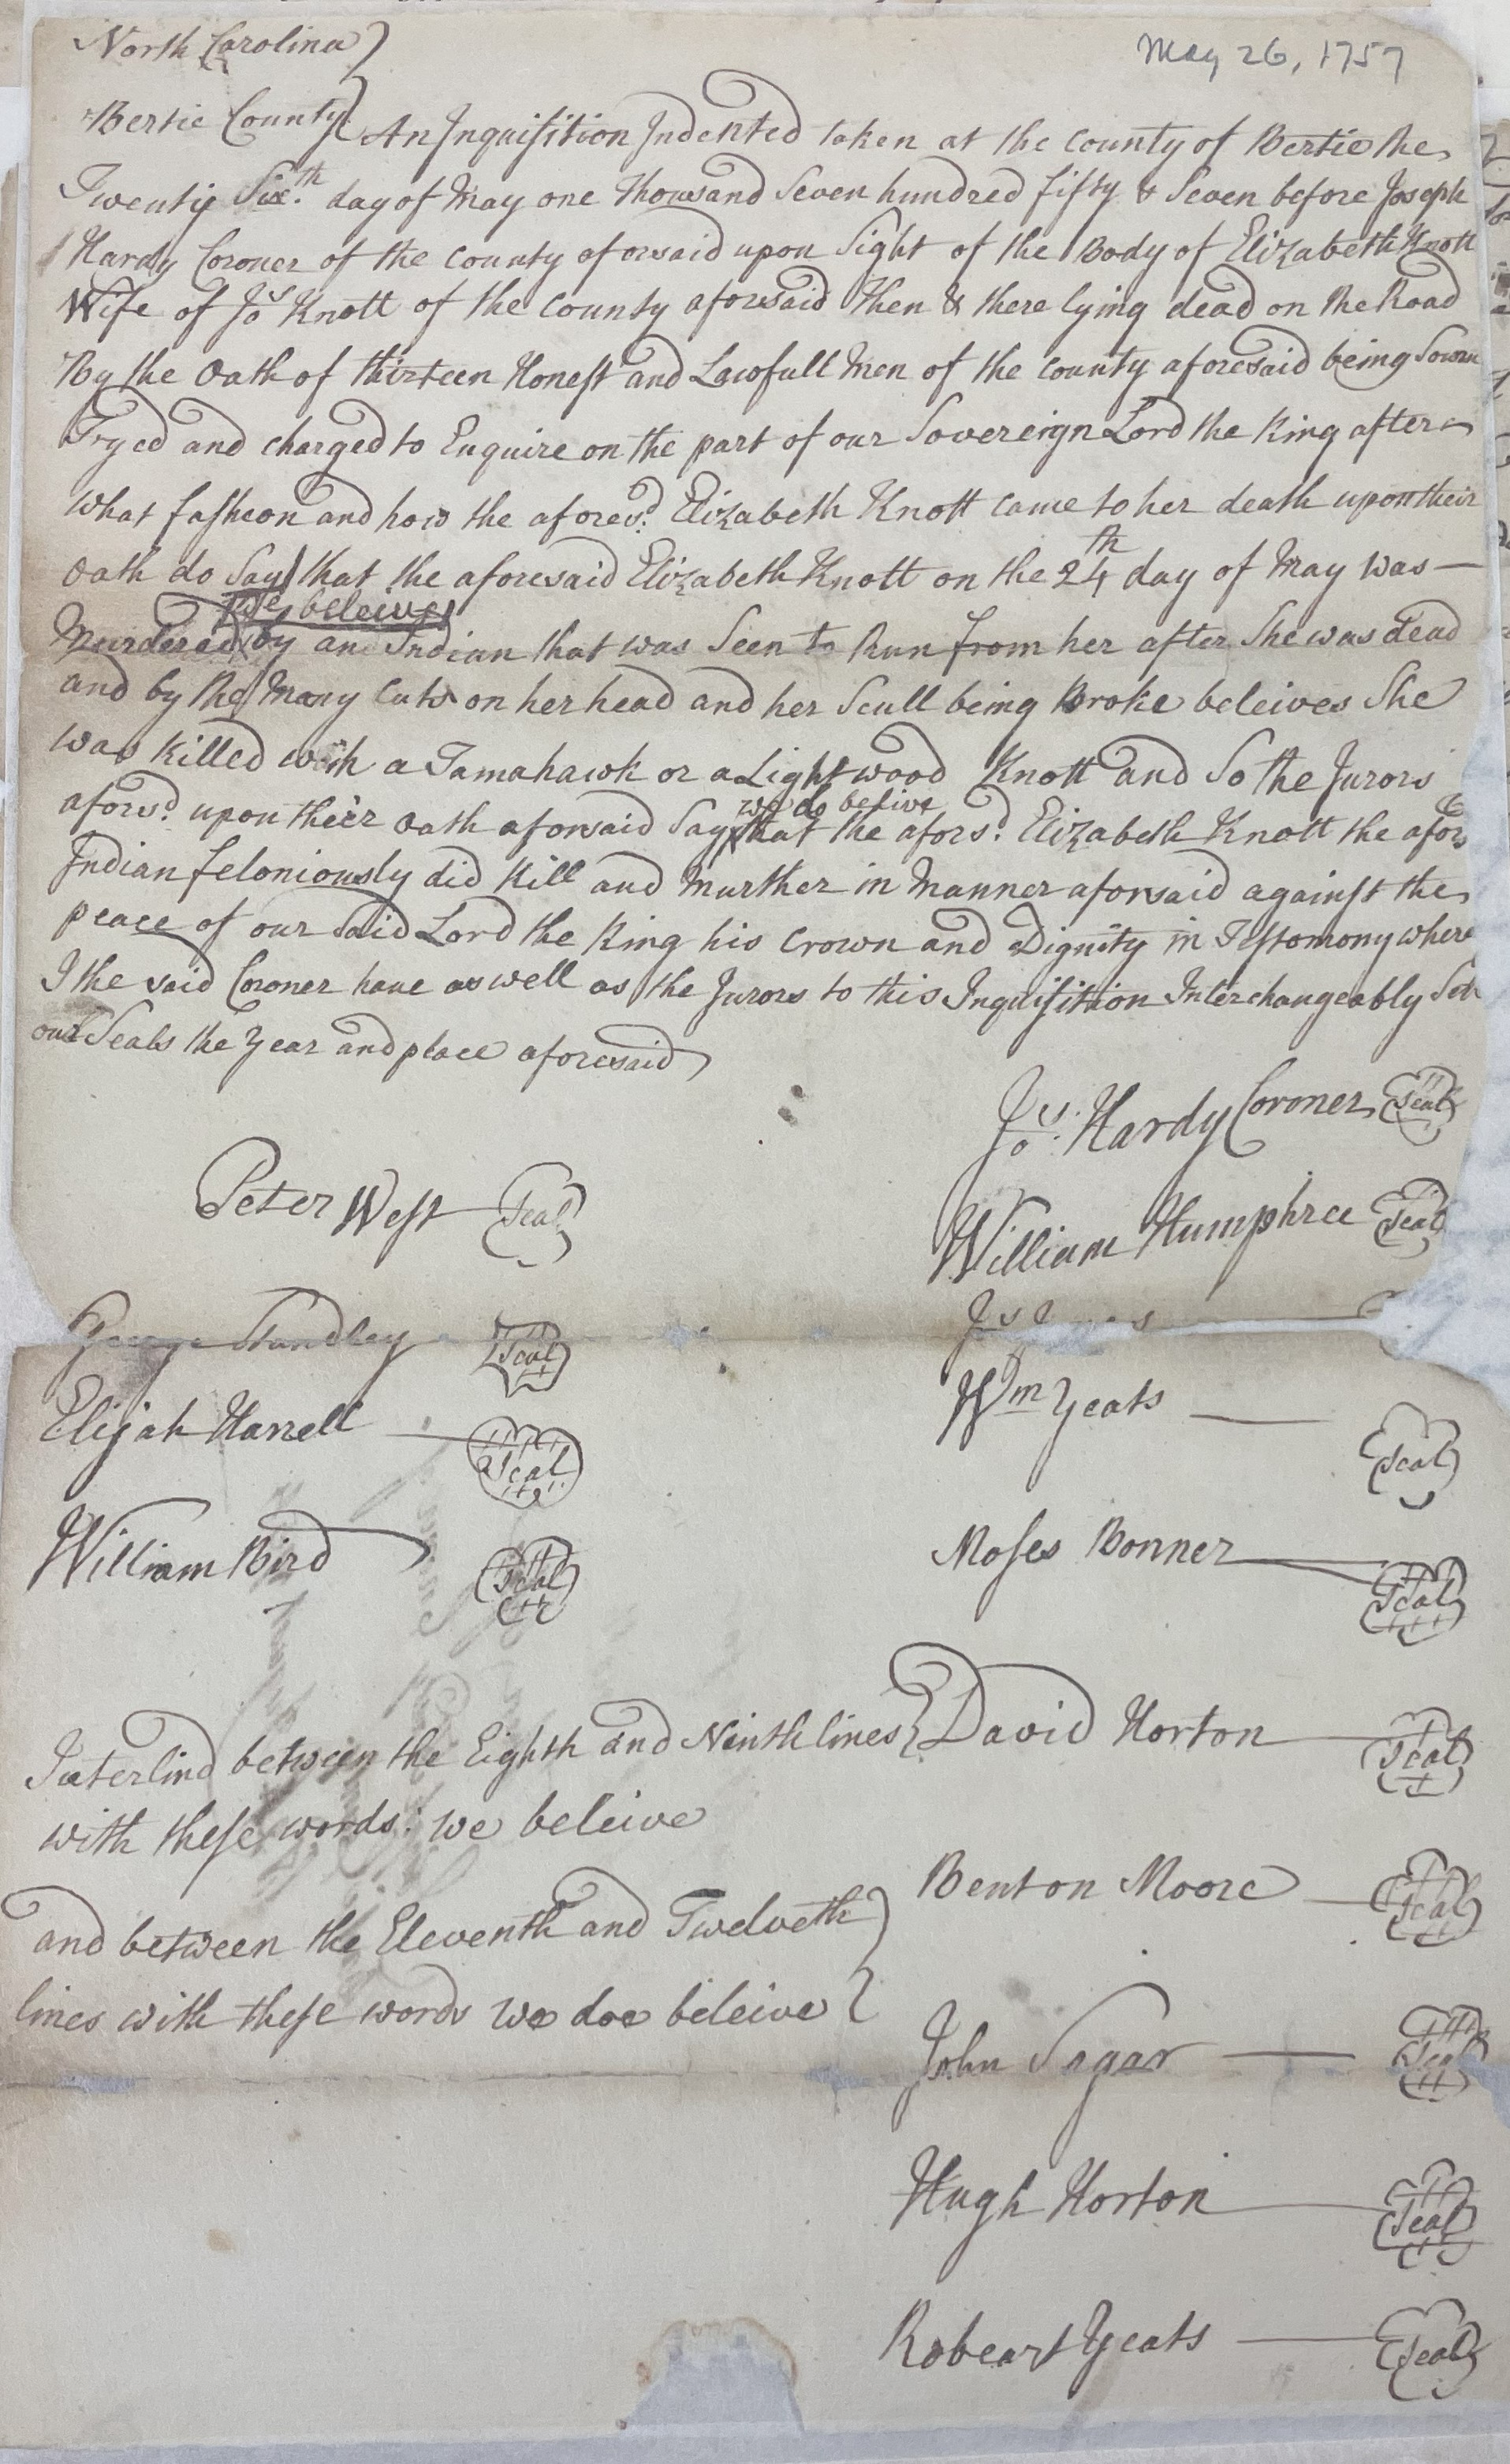 North Carolina)
May 26, 1757
Bertie County} An Inquisition Indented taken at the County of Bertie the
Twenty Six.th day of May one Thousand Seven hundred fifty & Seven before Joseph
Hardy Coroner of the County aforesaid upon Sight of the Body of Elizabeth Knott
Wife of Jos Knott of the County aforesaid then & there lying dead on the Road
By the Oath of thirteen Honest and Lawfull Men of the County aforesaid being Sworn
Tryed and charged to Enquire on the part of our Sovereign Lord the King after
what fasheon and how the aforesd. Elizabeth Knott came to her death upon their
Oath do Say that the aforesaid Elizabeth Knott on the 24th day of May was —
we beleive
Murdered by an Indian that was Seen to Run from her after She was dead
and by the Many Cuts on her head and her Scull being Broke beleives She
was Killed with a Tamahawk or a Lightwood Knott and So the Jurors
we do belive
aforsd. upon their Oath aforsaid Say that the afors'd. Elizabeth Knott the afors
Indian feloniously did Kill and Murther in Manner aforsaid against the
peace of our Said Lord the King his Crown and Dignity in Testomony where
I the said Coroner have as well as the Jurors to this Inquisition Interchangeably Set
our Seals the Year and place aforesaid
Jos. Hardy Coroner Seal
Peter West Seal
William Humphree Seal
George Standley Seal
Elijah Harrell Seal
Wm Yeats — Seal
William Bird Seal
Moses Bonner Seal
Interlind between the Eighth and Ninth lines}
David Horton Seal
with these words: we beleive
Benton Moore Seal
and between the Eleventh and Twelveth)
lines with these words we doe beleive}
John Sagar — Seal
Hugh Horton Seal
Robeart Yeats — Seal